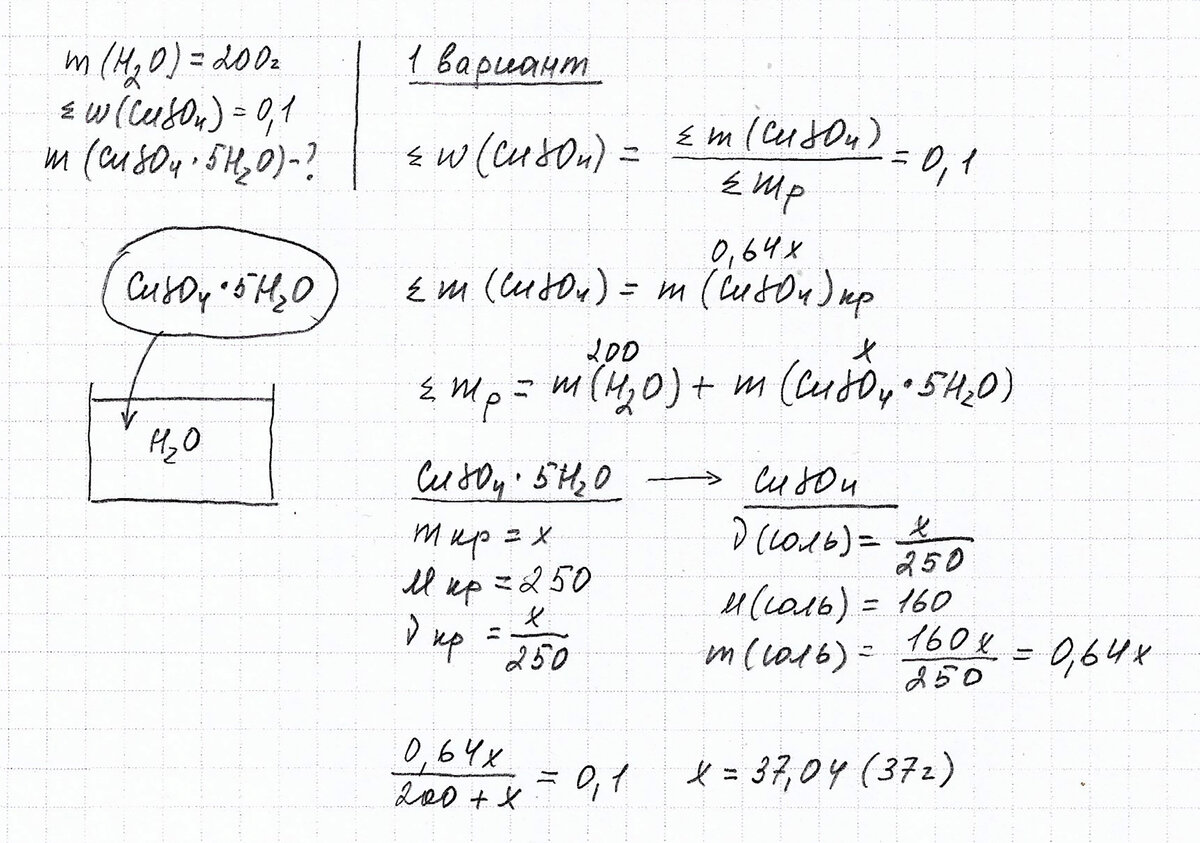 m(H₂O) = 200г
Σw(CuSO₄) = 0,1
m(CuSO₄·5H₂O) - ?
1 вариант
Σw(CuSO₄) = Σm(CuSO₄) / Σmр = 0,1
CuSO₄·5H₂O
H₂O
0,64x
Σm(CuSO₄) = m(CuSO₄)кр
200 x
Σmр = m(H₂O) + m(CuSO₄·5H₂O)
CuSO₄·5H₂O → CuSO₄
mкр = x
Mкр = 250
νкр = x/250
ν(соль) = x/250
M(соль) = 160
m(соль) = 160x/250 = 0,64x
0,64x / (200 + x) = 0,1 x = 37,04 (37г)